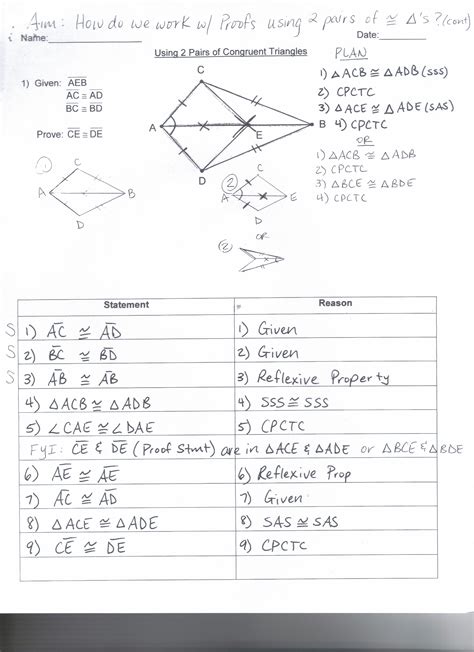 . Aim: How do we work w/ Proofs using 2 pairs of ≅ Δ's? (cont)
i Name: Date:
Using 2 Pairs of Congruent Triangles
PLAN
1) Given: AEB
AC ≅ AD
BC ≅ BD
Prove: CE ≅ DE
C
A
E
B
D
1) ΔACB ≅ ΔADB (SSS)
2) CPCTC
3) ΔACE ≅ ΔADE (SAS)
4) CPCTC
OR
1) ΔACB ≅ ΔADB
2) CPCTC
3) ΔBCE ≅ ΔBDE
4) CPCTC
①
C
A
B
D
②
C
A
E
D
OR
②
Statement Reason
S 1) AC ≅ AD 1) Given
S 2) BC ≅ BD 2) Given
S 3) AB ≅ AB 3) Reflexive Property
4) ΔACB ≅ ΔADB 4) SSS ≅ SSS
5) ∠CAE ≅ ∠DAE 5) CPCTC
FYI: CE & DE (Proof Stmt) are in ΔACE & ΔADE or ΔBCE & ΔBDE
6) AE ≅ AE 6) Reflexive Prop
7) AC ≅ AD 7) Given
8) ΔACE ≅ ΔADE 8) SAS ≅ SAS
9) CE ≅ DE 9) CPCTC